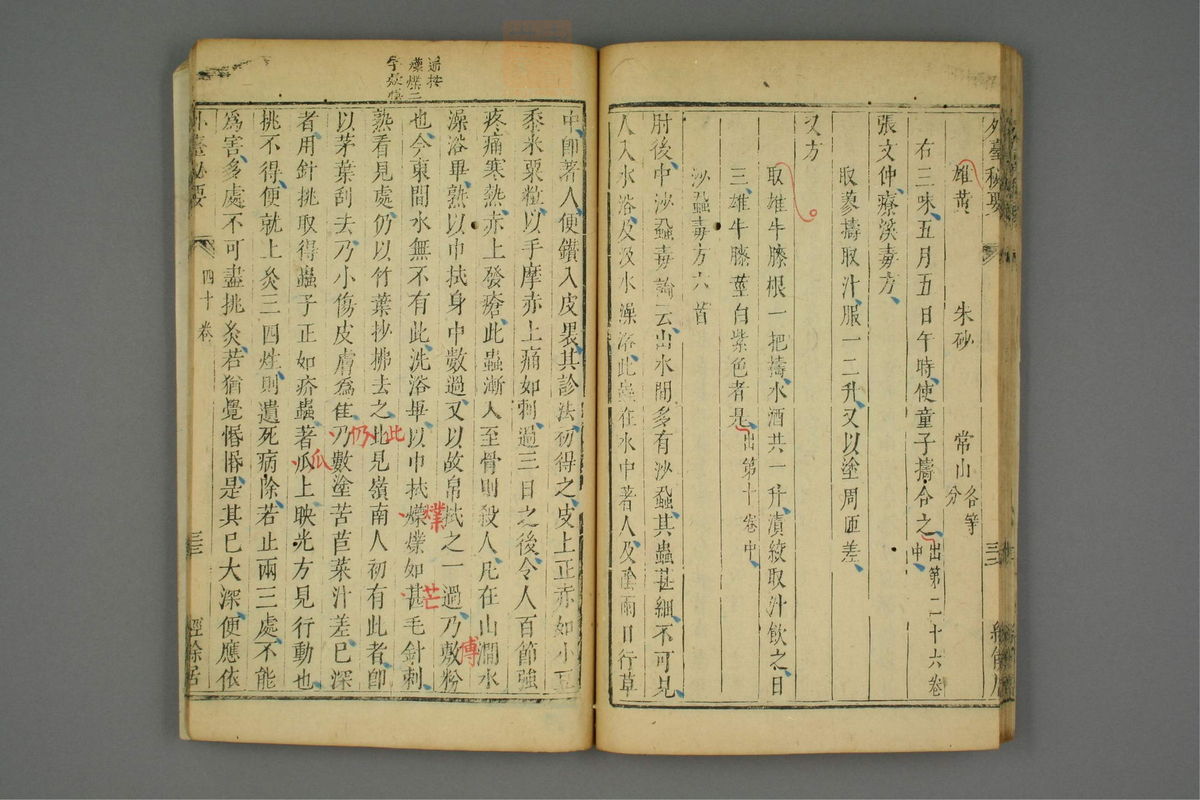 外臺秘要
雄黃 朱砂 常山各等分
右三味五月五日午時使童子擣合之出第二十六卷中
張文仲療溪毒方
取蓼擣取汁服一二升又以塗周匝差
又方
取雄牛膝根一把擣水酒共一升漬絞取汁飲之日
三雄牛膝莖白紫色者是出第十卷中
沙蝨毒方六首
肘後中沙蝨毒論云出水間多有沙蝨其蟲甚細不可見
人入水浴及汲水澡浴此蟲在水中著人及陰雨日行草
中卽著人便鑽入皮裏其診法初得之皮上正赤如小豆
黍米粟粒以手摩赤上痛如刺過三日之後令人百節強
疼痛寒熱赤上發瘡此蟲漸入至骨則殺人凡在山澗水
澡浴畢熟以巾拭身中數過又以故帛拭之一過乃敷粉
傅
也今東間水無不有此洗浴畢以巾拭爍爍如甚毛針刺
業 芒
熱看見處仍以竹葉抄拂去之比見嶺南人初有此者卽
此
以茅葉刮去乃小傷皮膚爲佳乃數塗苦苣菜汁差已深
仍
者用針挑取得蟲子正如疥蟲著爪上映光方見行動也
爪
挑不得便就上灸三四炷則遺死病除若止兩三處不能
爲害多處不可盡挑灸若猶覺惛惛是其已大深便應依
外臺秘要 四十卷 三三 經餘居